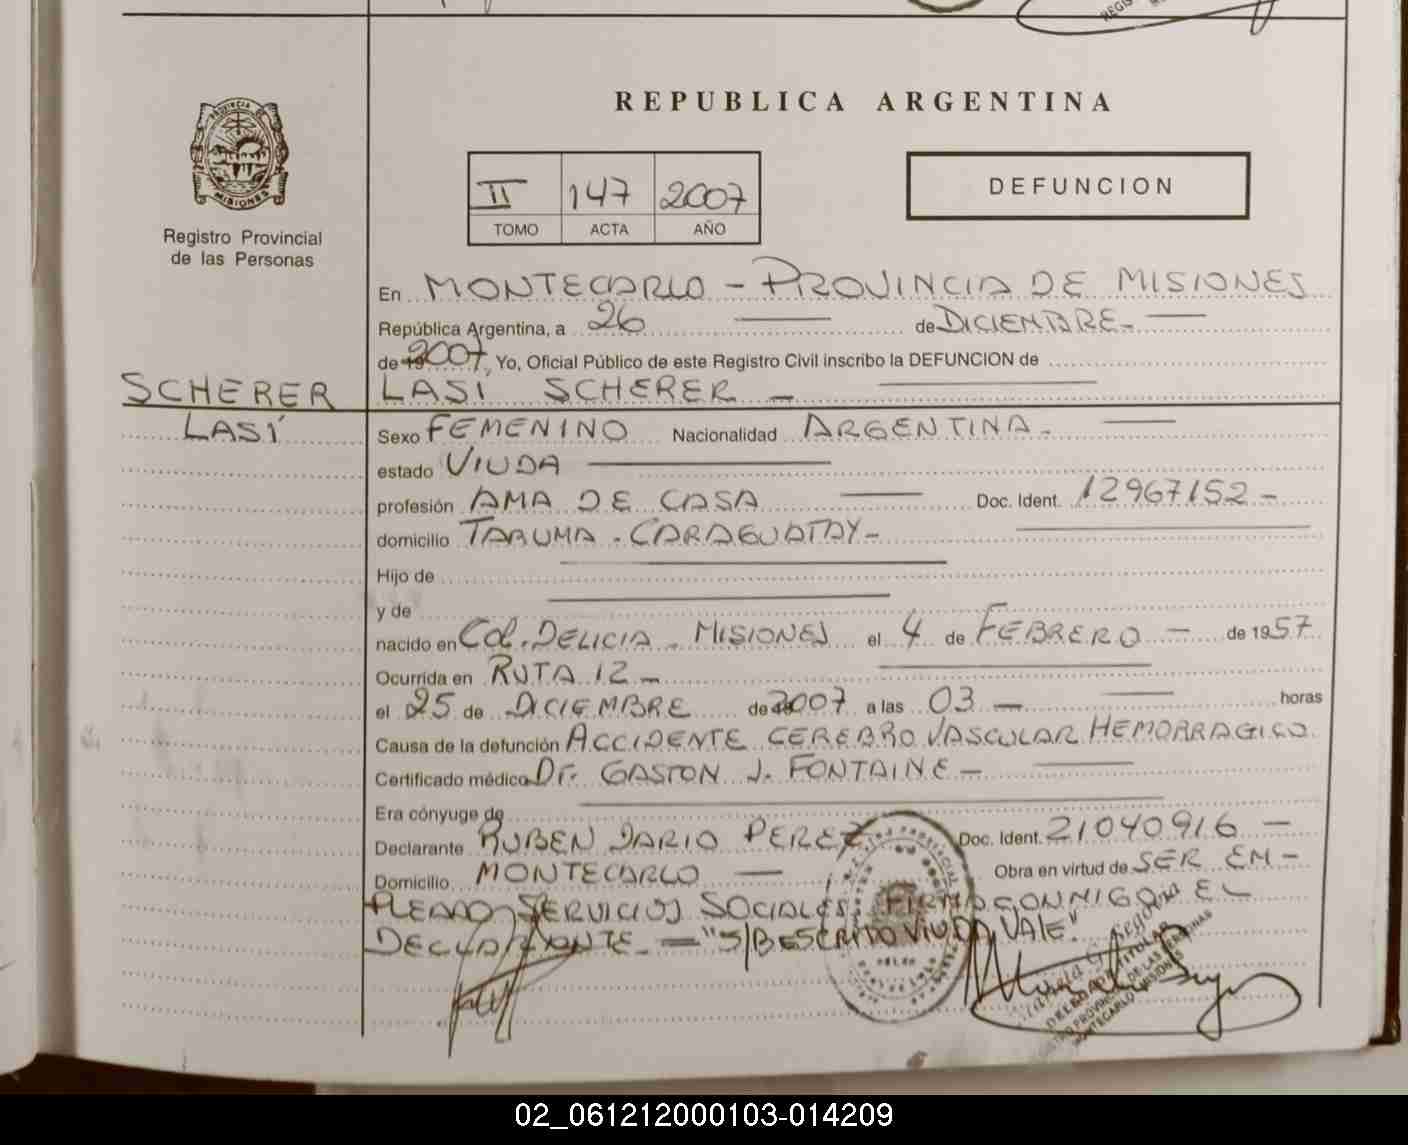 REPUBLICA ARGENTINA
PROVINCIA
MISIONES
Registro Provincial
de las Personas
II 147 2007
TOMO ACTA AÑO
DEFUNCION
En MONTECARLO - PROVINCIA DE MISIONES
República Argentina, a 26 de DICIEMBRE.
de 19 2007, Yo, Oficial Público de este Registro Civil inscribo la DEFUNCION de
SCHERER
LASÍ
LASI SCHERER -
Sexo FEMENINO Nacionalidad ARGENTINA.
estado VIUDA
profesión AMA DE CASA Doc. Ident. 12967152 -
domicilio TARUMA . CARAGUATAY -
Hijo de
y de
nacido en Col. DELICIA . MISIONES el 4 de FEBRERO - de 1957
Ocurrida en RUTA 12 -
el 25 de DICIEMBRE de 2007 a las 03 - horas
Causa de la defunción ACCIDENTE CEREBRO VASCULAR HEMORRAGICO.
Certificado médico Dr. GASTON J. FONTAINE -
Era cónyuge de
Declarante RUBEN DARIO PEREZ Doc. Ident. 21040916 -
Domicilio MONTECARLO Obra en virtud de SER EM-
PLEADO SERVICIOS SOCIALES. FIRMA CONMIGO EL
DECLARANTE. - "S/BESCRITO VIUDA, VALE".
DELEGADA TITULAR
REGISTRO PROVINCIAL DE LAS PERSONAS
MONTECARLO MISIONES
02_061212000103-014209